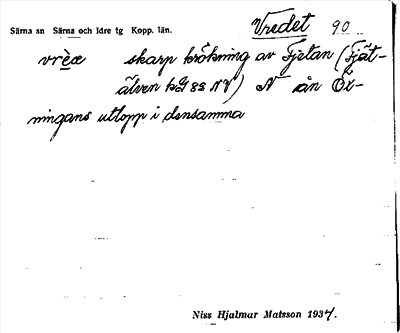 Vredet 90
Särna sn Särna och Idre tg Kopp. län.
vrèe skarp krökning av Fjetan (Fjät-
älven kG 82 NV) N ån Öx-
ningans utlopp i densamma
Niss Hjalmar Matsson 1937.